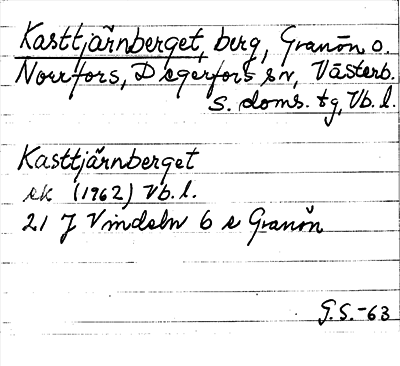 Kasttjärnberget, berg, Granön o.
Norrfors, Degerfors sn, Västerb.
s. doms. tg, Vb. l.
Kasttjärnberget
ek (1962) Vb. l.
21 J Vindeln 6 e Granön
G.S.-63